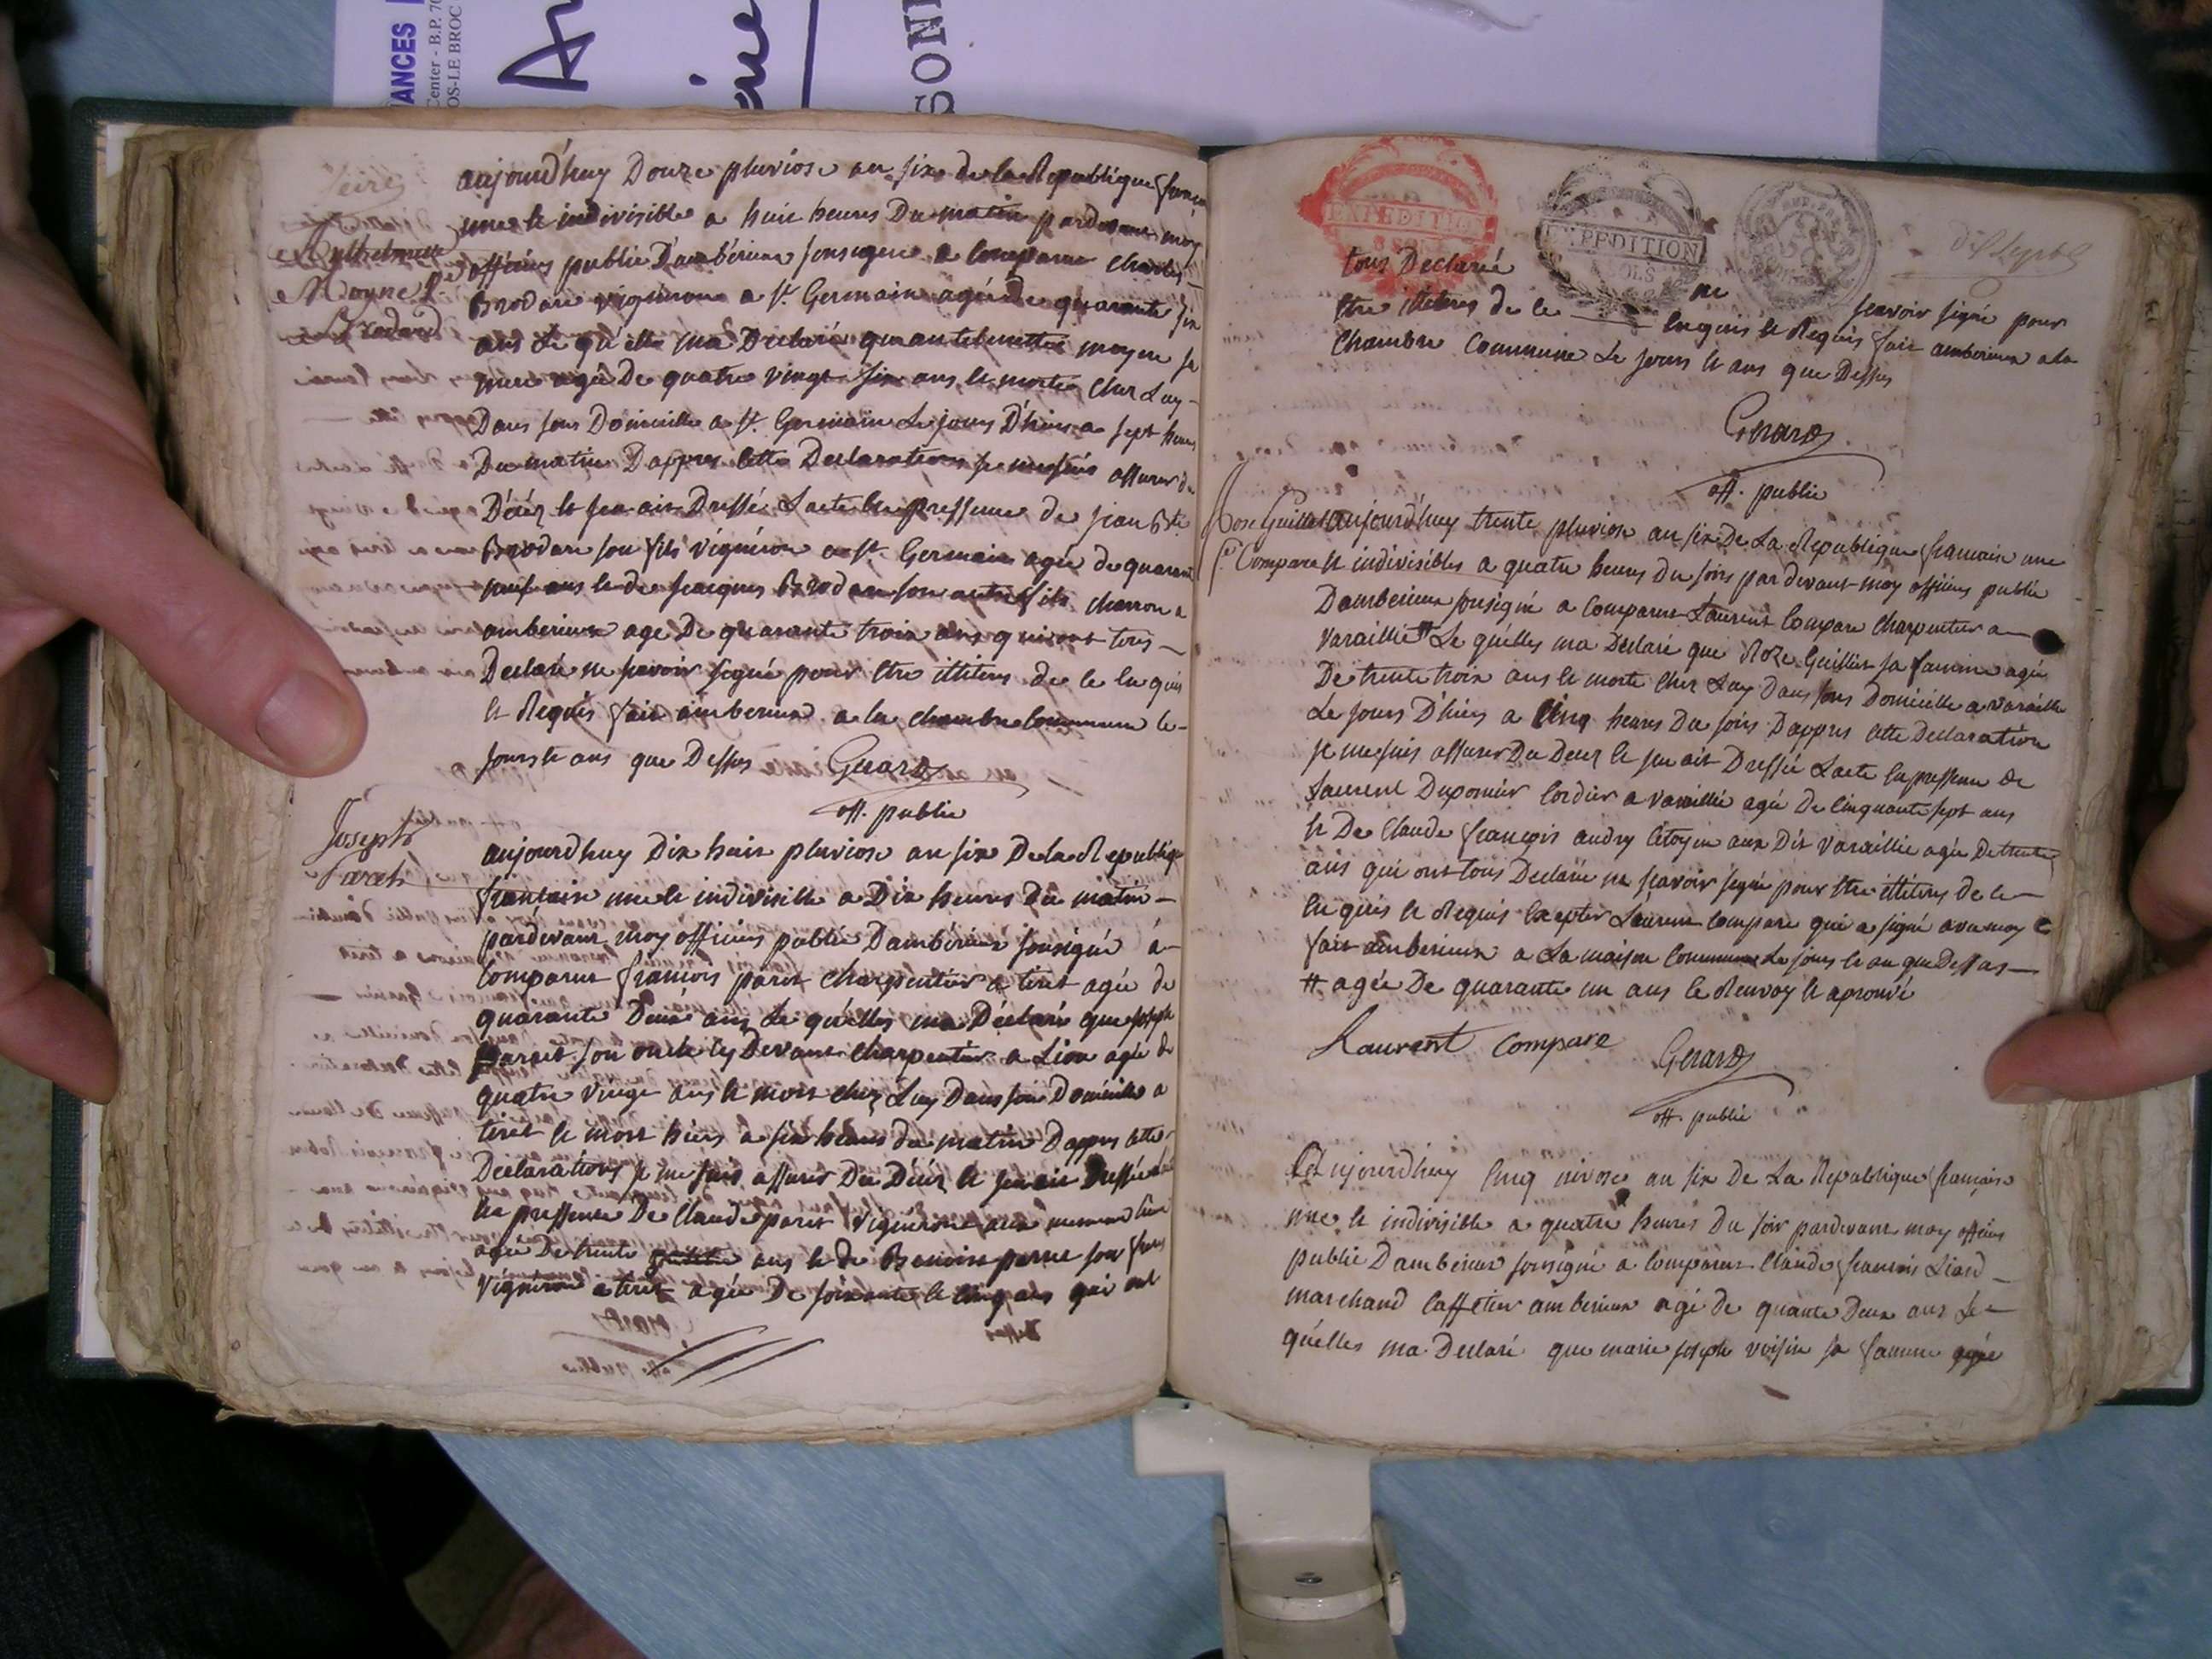 ANCES
Center - B.P. 70
OS-LE BROC
SON
aujourd'huy Douze pluviose an six de la Republique
une et indivisible a huit heures Du matin pardevant moy
officier public D'ambérieux sousigné a comparu charles
Brodare vigneron a St. Germain agé de quarante six
ans Le quelle ma Declaré qu'antelmette moyne sa
mere agée De quatre vingt six ans et morte chez Luy
Dans sons Domicille a St. Germain Le jours D'hiers a sept heures
Du matin D'appres cette Declarations je me suis assurer du
Décéz et jen ait Dressé Lacte en pressence de jean Bte
Brodare son fils vigneron a St. Germain agée de quarante
neuf ans et de jacques Brodare son autre fils charron a
amberieux age De quarante trois ans qui ont tous
Declaré ne scavoir signé pour etre illiteres de ce enquis
et Requis fait amberieux a la chambre Commune le
jours et ans que Dessus Gerard
off. public
Joseph
Paret
aujourdhuy Dix huit pluviose an six De la Republique
francaise une et indivisible a Dix heures du matin
pardevant moy officiers public Dambérieux sousigné à
Comparut francois paret charpentier a tiret agée de
quarante Deux ans Le quélles ma Déclaré que joseph
parret son oncle cy Devant charpentier a Lion agée de
quatre vingt ans et mort chez Luy Dans son Domicille a
tiret et mort hiers a six heures du matin Dappres cette
Declarations je me suis assurer Du Décéz et jen ait Dressé
En pressence De Claude paret vigneron aux meme lieu
agée De trente ans et de Benoit perret son
vigneron a tiret agée De soixante et cinq ans qui ont
EXPEDITION
EXPEDITION
SOLS
tous Declaré ne scavoir signé pour
etre illiteres de ce enquis et Requis fait amberieux a la
Chambre Commune Le jours et ans que Dessus
Gerard
off. public
Rose Guillet
fe Compare
aujourd'huy trente pluviose an six De La Republique francaise une
et indivisibles a quatre heures du soirs par devant moy officiers public
Damberieux sousigné a Comparut Laurent Compare charpentier a
varaillie # Le quélles ma Déclaré que Roze Guillet sa famme agée
De trente trois ans et morte chez Luy Dans sons Domicille a varaillie
Le jours D'hiers a Cinq heures Du soirs Dappres cette Declaration
je me suis assurer Du Decez et jen ait Dressé Lacte en pressence de
Laurent Duponier Cordier a varaillie agée De cinquante sept ans
et De Claude francois audry Citoyen aux Dit varaillie agée De trente
ans qui ont tous Declaré ne scavoir signé pour etre illiteres de ce
enquis et Requis Excepter Laurent Compare qui a signé avec moy
fait amberieux a La maison Commune Le jours et an que Dessus
# agée De quarante un ans le Renvoy et aprouvé
Laurent Compare Gerard
off. public
Aujourdhuy Cinq nivose an six De La Republique française
une et indivisible a quatre heures Du soir pardevant moy officier
public Damberieux sousigné a Comparut Claude francois Liard
marchand Caffetier amberieux agé de quarante Deux ans Le
quélles ma Declaré que marie joseph voisin sa famme agée